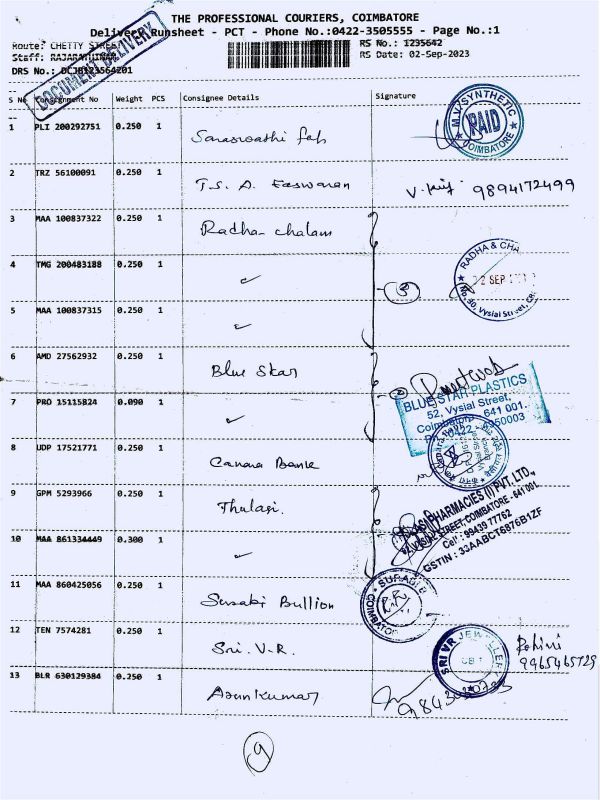 THE PROFESSIONAL COURIERS, COIMBATORE
Delivery Runsheet - PCT - Phone No.:0422-3505555 - Page No.:1
Route: CHETTY STREET
RS No.: 1235642
Staff: RAJARATHINAM
RS Date: 02-Sep-2023
DRS No.: DCJB123564201
DOCUMENT DELIVERY
S No Consignment No Weight PCS Consignee Details Signature
1 PLI 200292751 0.250 1 Saraswathi fab
M.V. SYNTHETIC
PAID
COIMBATORE
2 TRZ 56100091 0.250 1 T.S. A. Easwaran 9894172499
3 MAA 100837322 0.250 1 Radha chalam
4 TMG 200483188 0.250 1 ✓
3
RADHA & CHA
2 SEP
No.30, Vysial Street,
5 MAA 100837315 0.250 1 ✓
6 AMD 27562932 0.250 1 Blue Star
7 PRO 15115824 0.090 1 ✓
BLUE STAR PLASTICS
52, Vysial Street,
Coimbatore - 641 001.
0422
8 UDP 17521771 0.250 1 Canara Bank
9 GPM 5293966 0.250 1 Thulasi.
PHARMACIES (I) PVT. LTD.,
VYSIAL STREET, COIMBATORE - 641 001.
Cell : 99439 77762
GSTIN : 33AABCT6876B1ZF
10 MAA 861334449 0.300 1 ✓
11 MAA 860425056 0.250 1 Surabi Bullion
SURABI
COIMBATORE
12 TEN 7574281 0.250 1 Sri. V.R.
SRI VR JEWELLERY
CB-1
Rohini
9965465729
13 BLR 630129384 0.250 1 Arunkumar
9